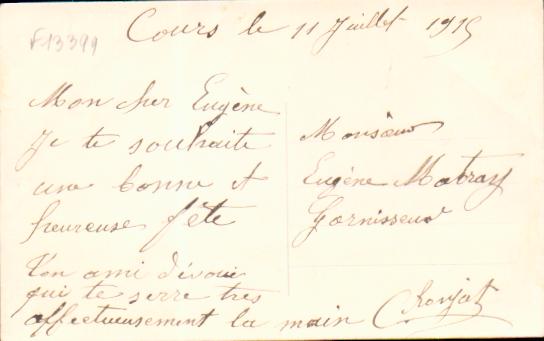 F13399
Cours le 11 Juillet 1915
Mon cher Eugène
Je te souhaite
une bonne et
heureuse fête
Ton ami dévoué
qui te serre très
affectueusement la main
Chonjat
Monsieur
Eugène Matray
Garnisseur